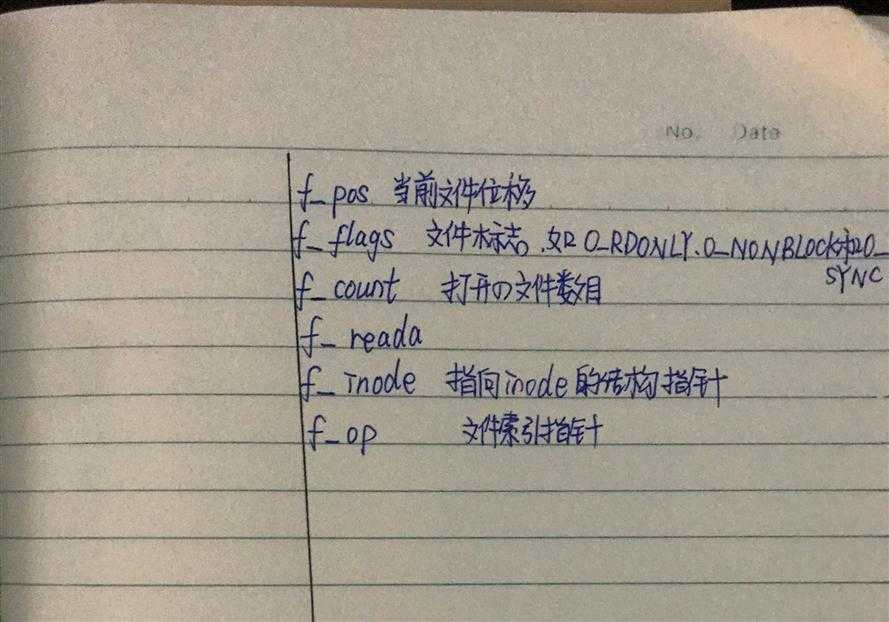 No. Date
f_pos 当前文件位移
f_flags 文件标志.如O_RDONLY.O_NONBLOCK和O_
SYNC
f_count 打开の文件数目
f_reada
f_inode 指向inode的结构指针
f_op 文件索引指针